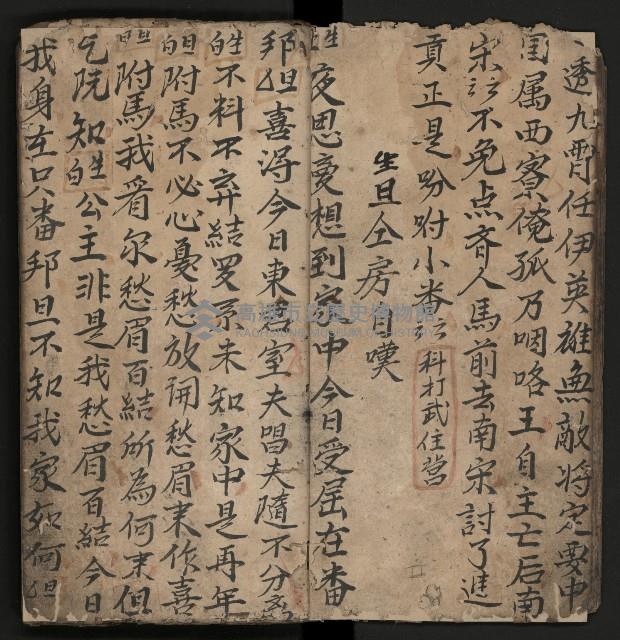 透九霄任伊英雄無敵将定要中
国属西寮俺孤乃咽咯王自主亡后南
宋云不免点齐人馬前去南宋討了進
貢正是吩咐小番云科打武住営
生旦仝房自嘆
生夜思夢想到家中今日受屈在番
邦旦喜得今日東室夫唱夫隨不分
白生不料不弃結罗未知家中是再年
白旦附馬不必心憂愁放開愁眉来作喜
附馬我看尔愁眉百結所為何来但
乞阮知白生公主非是我愁眉百結今日
我身在只番邦旦不知我家如何但
高雄市立歷史博物館
KAOHSIUNG MUSEUM OF HISTORY